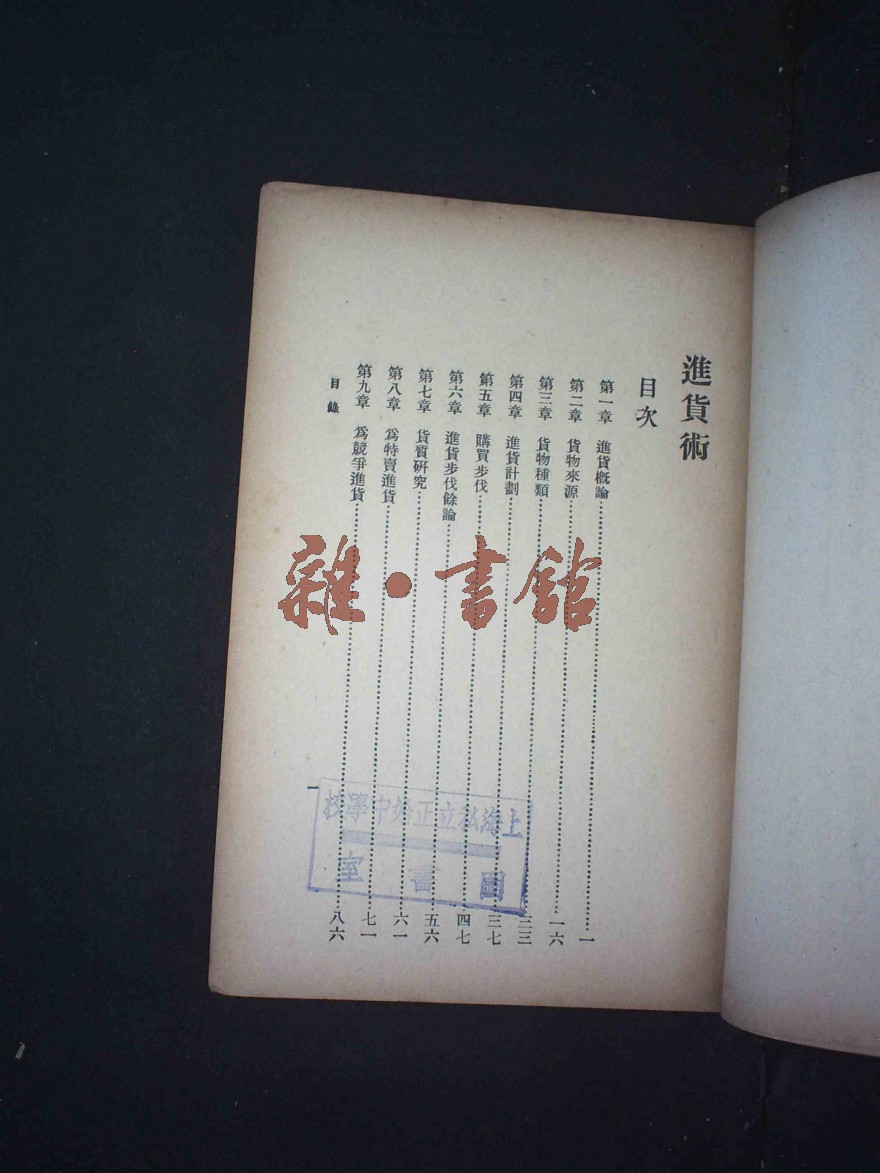 進貨術
目次
第一章 進貨概論……一
第二章 貨物來源……一六
第三章 貨物種類……
第四章 進貨計劃……三七
第五章 購買步伐……四七
第六章 進貨步伐餘論……五六
第七章 貨質研究……六一
第八章 爲特賣進貨……七一
第九章 爲競爭進貨……八六
目錄
一
雜·書館
上海私立正始中學校
圖書室